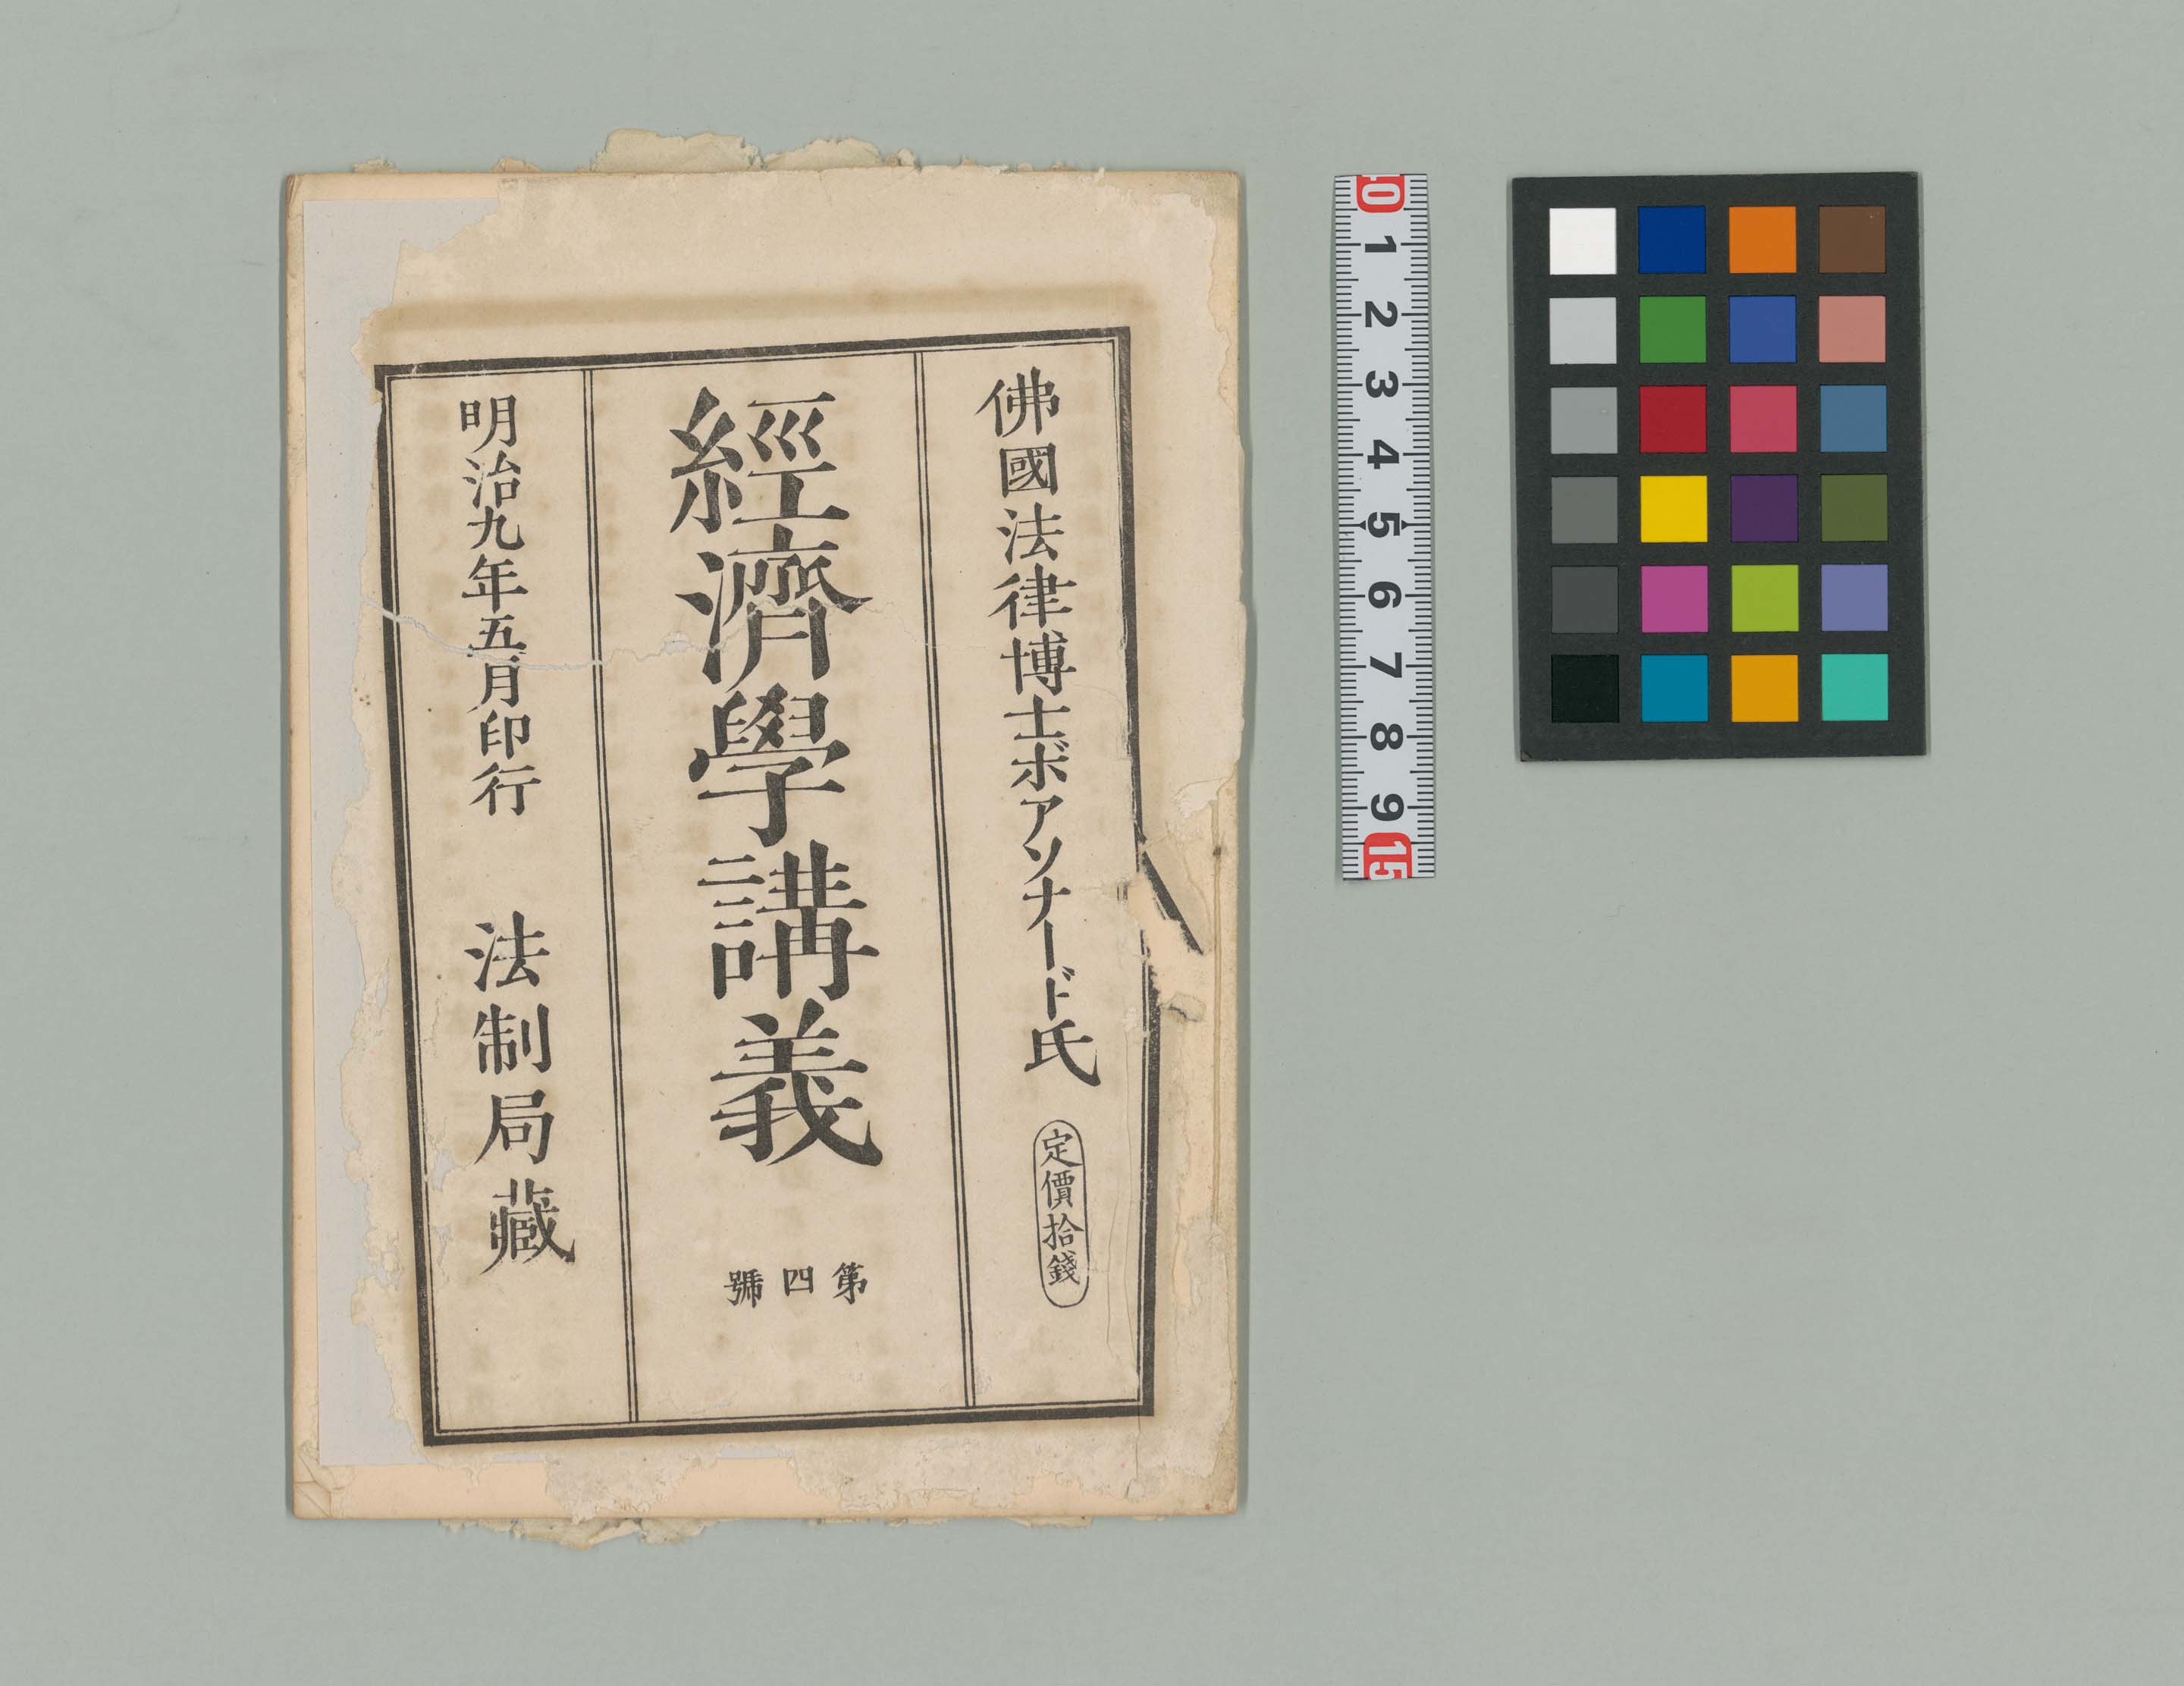 佛國法律博士ボアソナード氏
定價拾錢
經濟學講義
第四號
明治九年五月印行
法制局藏
10
1
2
3
4
5
6
7
8
9
15